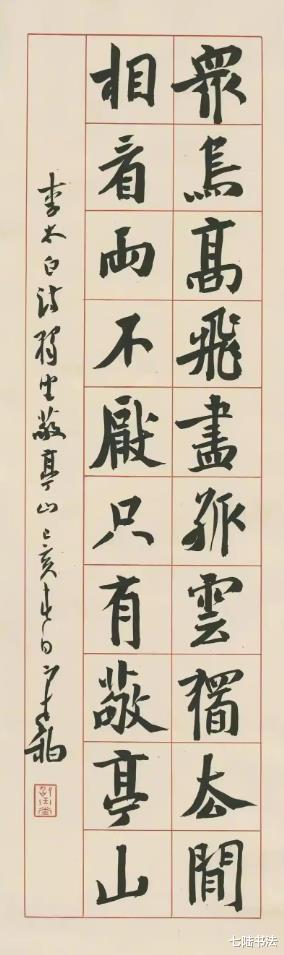 衆鳥高飛盡孤雲獨去閒
相看兩不厭只有敬亭山
李太白詩獨坐敬亭山己亥春日
七陆书法